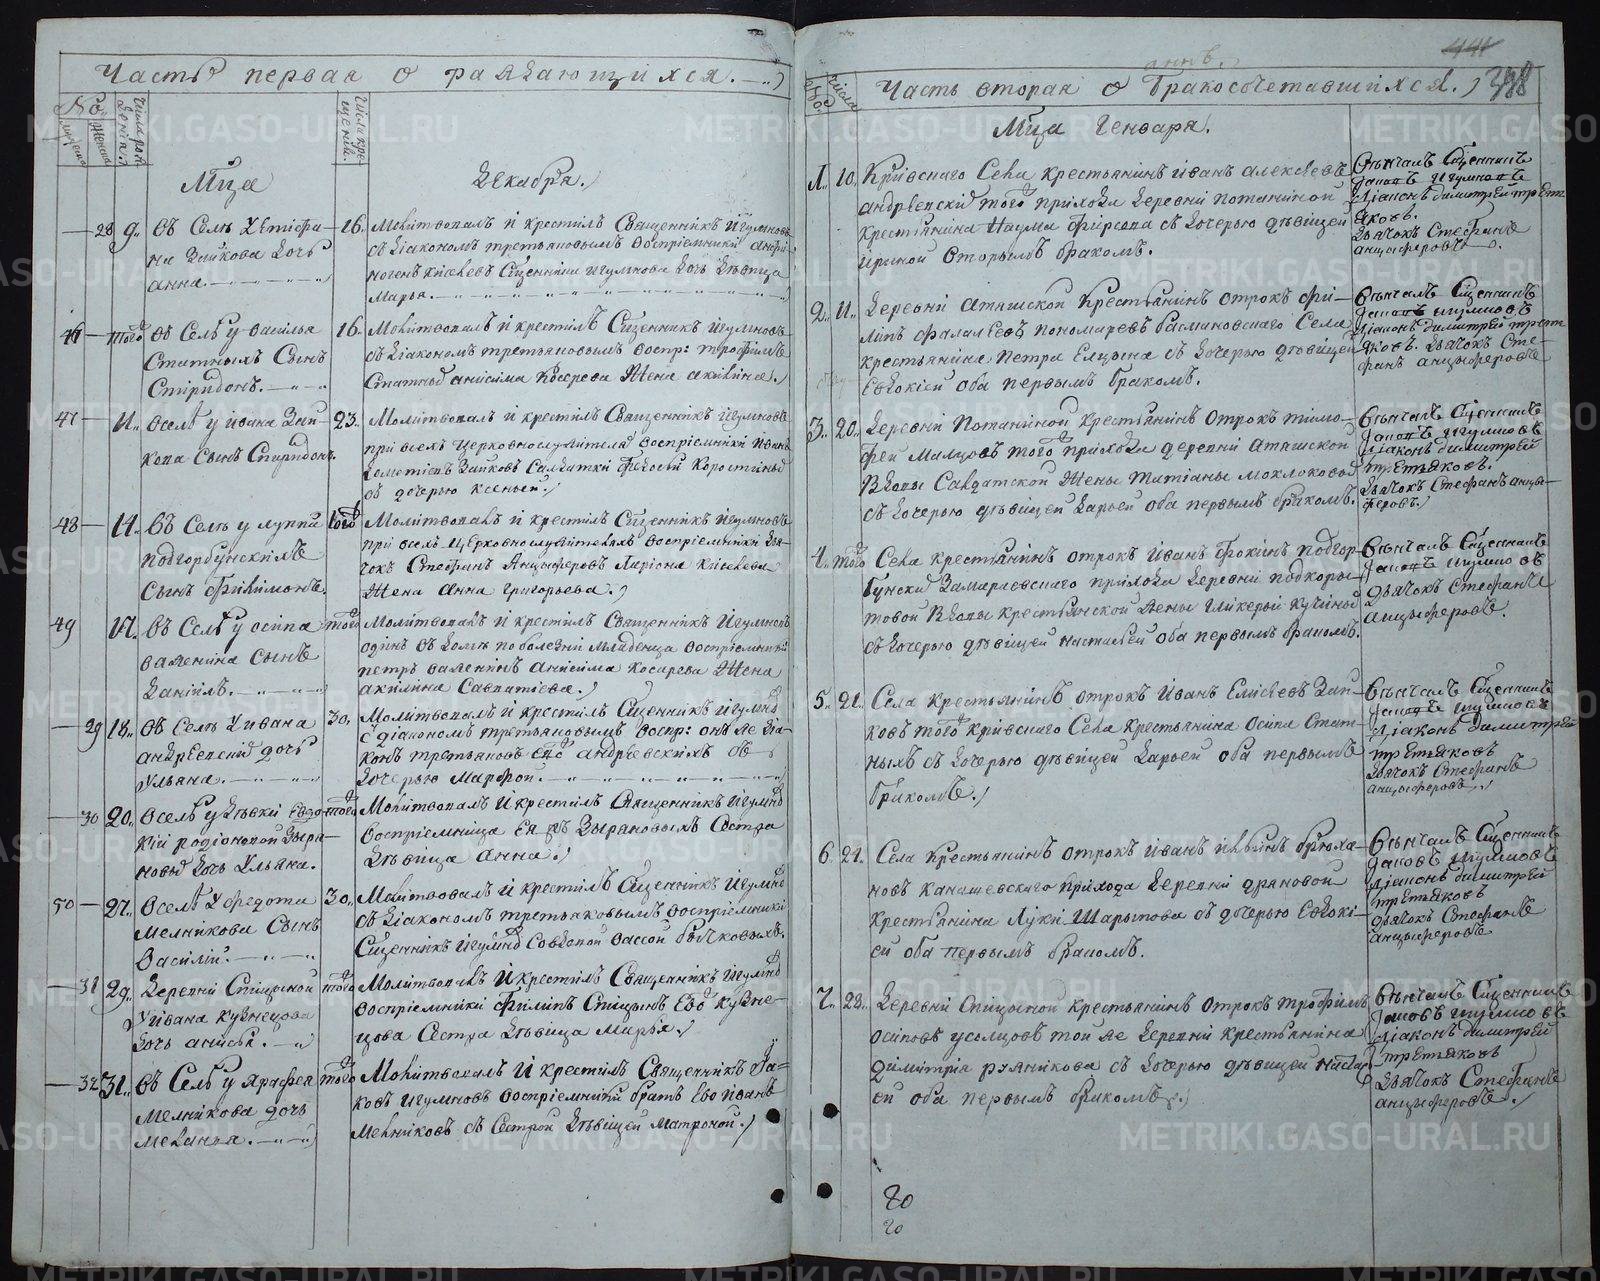 Часть первая о раждающихся.
№
Числа рож
денія.
Числа кре
щенія.
Мца Декабря.
28 9. Въ Селѣ У
на Зайкова дочь
Анна.
16. Молитвовалъ и крестилъ Священникъ Игумновъ
съ діакономъ Третьяковымъ воспріемники
Сщенника Игумнова дочь дѣвица
Марья.
46 того Въ Селѣ у Василья
Статныхъ Сынъ
Спиридонъ.
16. Молитвовалъ и крестилъ Сщенникъ Игумновъ
съ діакономъ Третьяковымъ воспр: Трофимъ
Статной Анисима Косарева Жена Акилина.
47 11. Въ селѣ у Ивана Зай-
кова Сынъ Спиридонъ.
23. Молитвовалъ и крестилъ Священникъ Игумновъ
при всехъ церковнослужителяхъ воспріемники Иванъ
Зайковъ Салдатки Коростиной
съ дочерью Ксеньей.
48 14. Въ Селѣ у Луппы
Подгорбунскихъ
Сынъ Филимонъ.
того Молитвовалъ и крестилъ Сщенникъ Игумновъ
при всехъ церковнослужителяхъ воспріемники дья-
чокъ Стефанъ Анцыферовъ Ларіона Киселева
Жена Анна Григорьева.
49 17. Въ Селѣ у Осипа
Важенина Сынъ
Даніилъ.
того Молитвовалъ и крестилъ Священникъ Игумновъ
одинъ въ домѣ по болезни младенца воспріемники
Петръ Важенинъ Анисима Косарева Жена
Акилина Савватіева.
29 18. Въ Селѣ у Ивана
Андреевский дочь
Ульяна.
30. Молитвовалъ и крестилъ Сщенникъ Игумновъ
съ діакономъ Третьяковымъ воспр: онъ же діа-
конъ Третьяковъ Андреевскихъ съ
дочерью Марфой.
30 20. Въ селѣ у дѣвки Евдо-
кіи Родіоновой Зыря-
новой дочь Ульяна.
того Молитвовалъ и крестилъ Священникъ Игумновъ
Воспріемница Ея Зыряновыхъ Сестра
дѣвица Анна.
50 27. Въ селѣ у Федота
Мелникова Сынъ
Василій.
30. Молитвовалъ и крестилъ Сщенникъ Игумновъ
съ діакономъ Третьяковымъ воспріемники
Сщенникъ Игумновъ Со вдовой Вассой Бычковыхъ.
31 29. Деревни Спицыной
у Ивана Кузнецова
дочь Анисья.
того Молитвовалъ и крестилъ Священникъ Игумновъ
воспріемники Филипъ Спицынъ Его Кузне-
цова Сестра дѣвица Марья.
32 31. Въ Селѣ у Ярафея
Мелникова дочь
Меланья.
того Молитвовалъ и крестилъ Священникъ Іа-
ковъ Игумновъ воспріемники братъ Его Иванъ
Мелниковъ съ Сестрой дѣвицей Матроной.
441
398
Часть вторая о бракосочетавшихся.
№
числа
Мца Генваря.
1. 10. Кривского Села крестьянинъ Иванъ Алексѣевъ
Андреевский того прихода деревни Потаниной
крестьянина Наума Фирсова съ дочерью дѣвицей
Ириной вторымъ бракомъ.
Вѣнчалъ Сщенникъ
Іаковъ Игумновъ
Діаконъ Димитрей Треть
яковъ.
Дьячокъ Стефанъ
Анцыферовъ.
2. 11. Деревни Аташской Крестьянинъ отрокъ Фи-
липъ Фалалѣевъ Пономаревъ Расмановского Села
крестьянина Петра Елцына съ дочерью дѣвицей
Евдокіей оба первымъ бракомъ.
Вѣнчалъ Сщенникъ
Іаковъ Игумновъ
Діаконъ Димитрей Треть
яковъ. Дьячокъ Сте-
фанъ Анцыферовъ
3. 20. Деревни Потаниной крестьянинъ отрокъ Тимо-
фей Малцовъ того прихода деревни Аташской
вдовы Салдатской Жены Татьяны Моклоковой
съ дочерью дѣвицей Дарьей оба первымъ бракомъ.
Вѣнчалъ Сщенникъ
Іаковъ Игумновъ
Діаконъ Димитрей
Третьяковъ.
Дьячокъ Стефанъ Анцы-
феровъ.
4. того Села крестьянинъ отрокъ Иванъ Фокинъ Подгор-
бунский Замараевского прихода деревни Подкоры-
товой вдовы крестьянской Жены Гликерьи Кучиной
съ дочерью дѣвицей Настасьей оба первымъ бракомъ.
Вѣнчалъ Сщенникъ
Іаковъ Игумновъ
Дьячокъ Стефанъ
Анцыферовъ.
5. 21. Села крестьянинъ отрокъ Иванъ Елисѣевъ Зай-
ковъ того Кривского Села крестьянина Осипа Стат-
ныхъ съ дочерью дѣвицей Дарьей оба первымъ
бракомъ.
Вѣнчалъ Сщенникъ
Іаковъ Игумновъ
Діаконъ Димитрей
Третьяковъ
Дьячокъ Стефанъ
Анцыферовъ.
6 21. Села крестьянинъ отрокъ Иванъ Ильинъ Брюха-
новъ Канашевского прихода деревни Драновой
крестьянина Луки Шарыпова съ дочерью Евдокі-
ей оба первымъ бракомъ.
Вѣнчалъ Сщенникъ
Іаковъ Игумновъ
Діаконъ Димитрей
Третьяковъ
Дьячокъ Стефанъ
Анцыферовъ
7. 22. Деревни Спицыной крестьянинъ отрокъ Трофимъ
Осиповъ Усолцовъ той же деревни крестьянина
Димитрія Ружникова съ дочерью дѣвицей Настась-
ей оба первымъ бракомъ.
Вѣнчалъ Сщенникъ
Іаковъ Игумновъ
Діаконъ Димитрей
Третьяковъ
Дьячокъ Стефанъ
Анцыферовъ.
METRIKI.GASO-URAL.RU